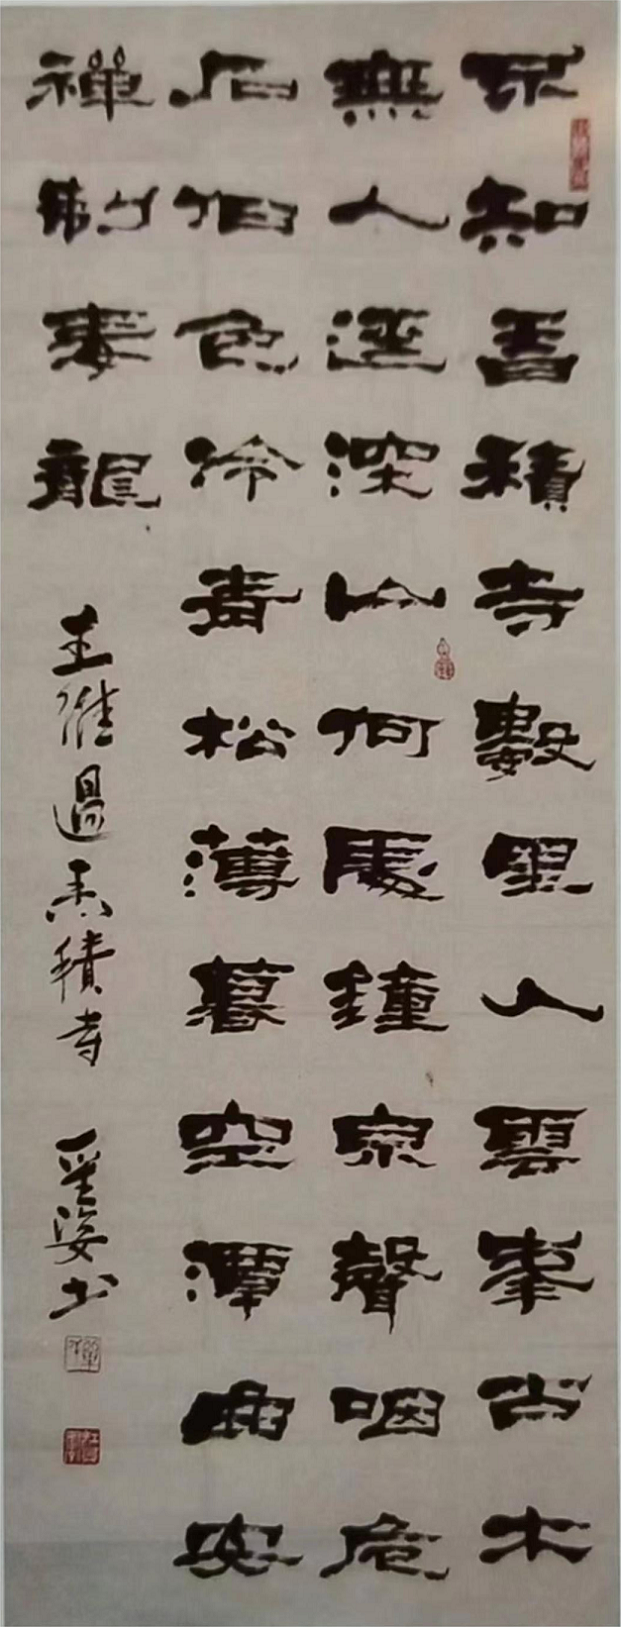 不知香積寺數里入雲峯古木
無人逕深山何處鐘泉聲咽危
石色冷青松薄暮空潭曲安
禪制毒龍
王維過香積寺
姿书